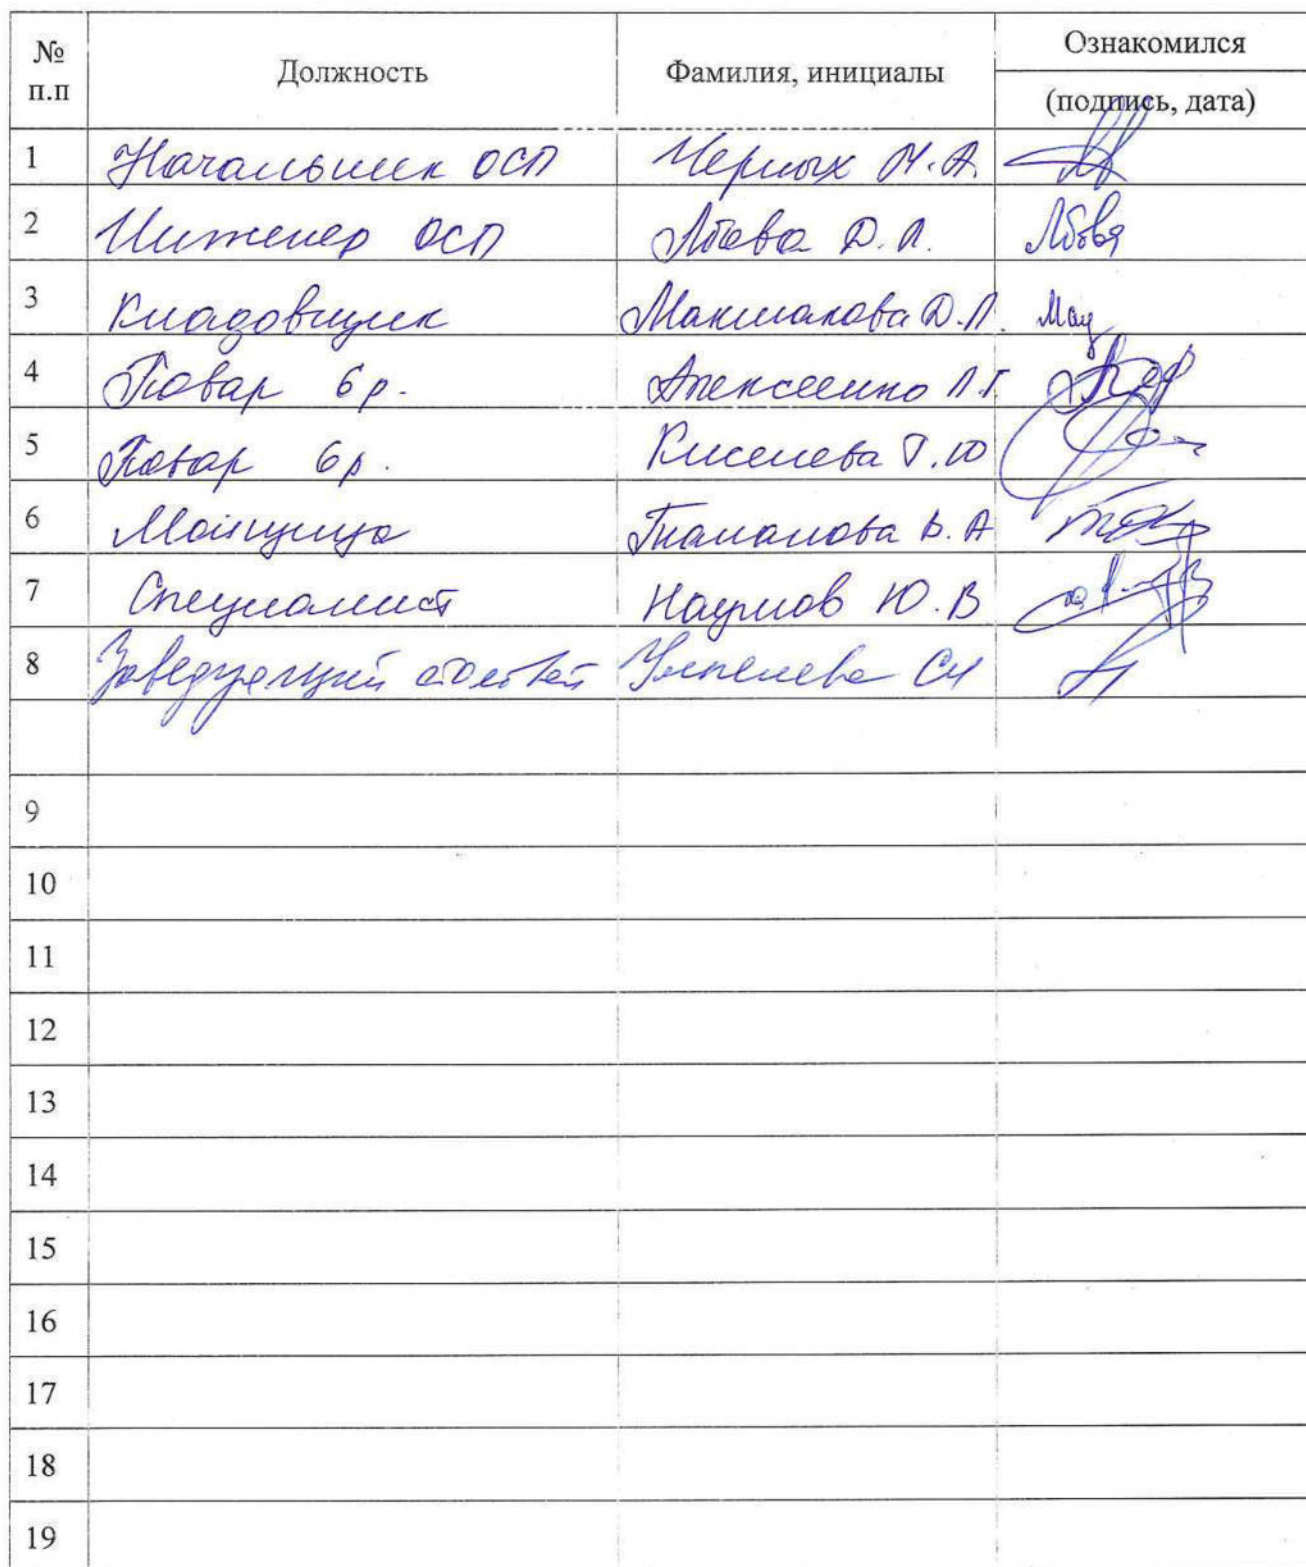 № п.п Должность Фамилия, инициалы Ознакомился
(подпись, дата)
1 Начальник ОСП Черных М.А.
2 Инженер ОСП Абова Д.Л.
3 Кладовщик Макшакова Д.Л.
4 Повар 6р. Алексеенко Л.Г.
5 Повар 6р. Киселева Т.Ю
6 Мойщица В.А
7 Специалист Наумов Ю.В
8 Заведующий
9
10
11
12
13
14
15
16
17
18
19